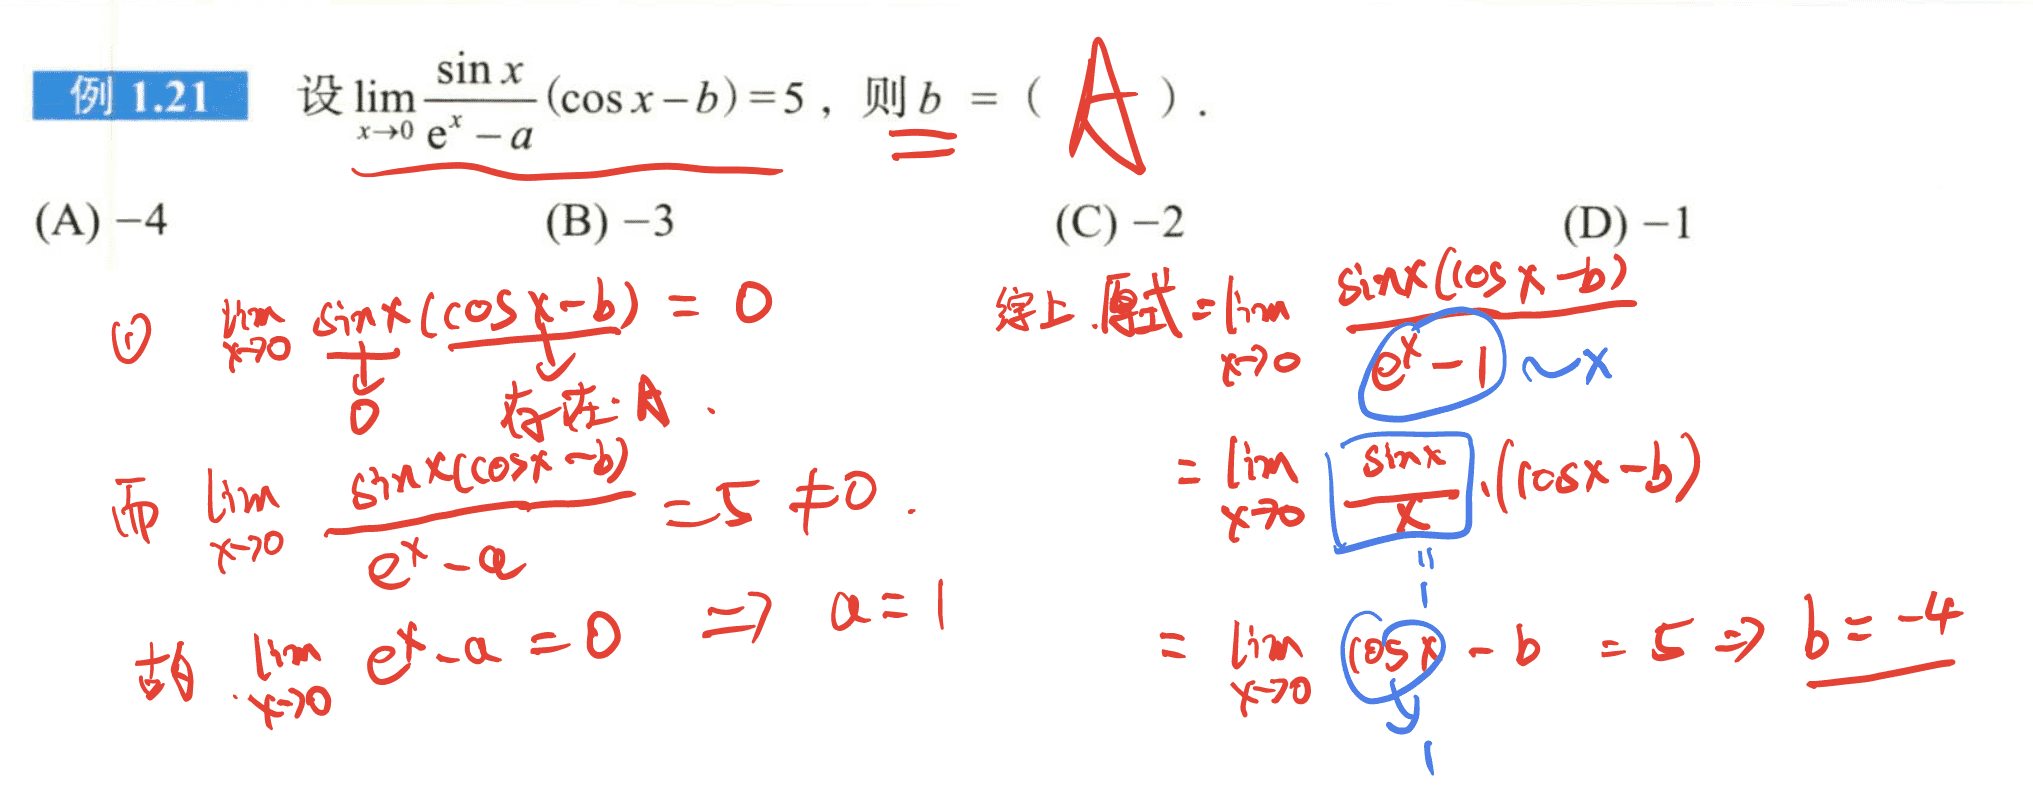 例 1.21 设 lim x→0 sin x / (e^x − a) (cos x − b) = 5 , 则 b = ( A ) .
(A) −4 (B) −3 (C) −2 (D) −1
① lim x→0 sinx (cosx−b) = 0
0 存在: A .
而 lim x→0 sinx(cosx−b) / (e^x − a) = 5 ≠ 0 .
故 lim x→0 e^x − a = 0 ⇒ a = 1
综上. 原式 = lim x→0 sinx(cosx−b) / (e^x − 1) ~ x
= lim x→0 sinx / x · (cosx−b)
"
1
= lim x→0 cosx − b = 5 ⇒ b = −4
1